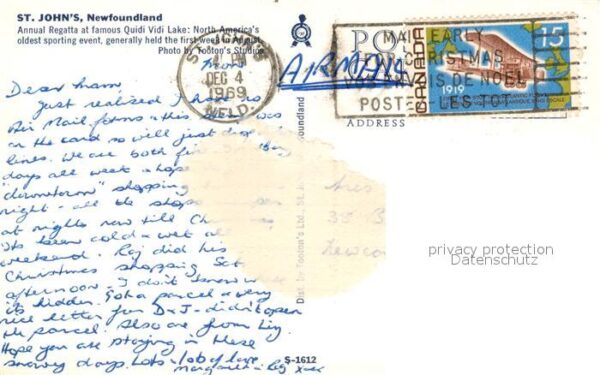 ST. JOHN'S, Newfoundland
Annual Regatta at famous Quidi Vidi Lake: North America's
oldest sporting event, generally held the first week in August.
Photo by Tooton's Studios
from
Dear Mam,
Just realised I have no
Air Mail forms & this was
on the card so will just drop
lines. We are both fine. Busy
days all week & hope
"downtown" shopping
night - all the shops open
at nights now till Ch
Its been cold & wet all
weekend. Roj did his
Christmas shopping Sat
afternoon. I don't know w
its hidden. Got a parcel & very
nice letter from D & J - didn't open
the parcel. Also one from Liz.
Hope you are staying in these
snowy days. Lots & lots of love
Margaret & Roj xxx
DEC 4
1969
NFLD.
AIR MAIL
MAIL EARLY
CHRISTMAS
DE NOEL
POSTE
LES TOT
ADDRESS
CANADA
15
1919
Dist. by Tooton's Ltd., St.
foundland
S-1612
privacy protection
Datenschutz